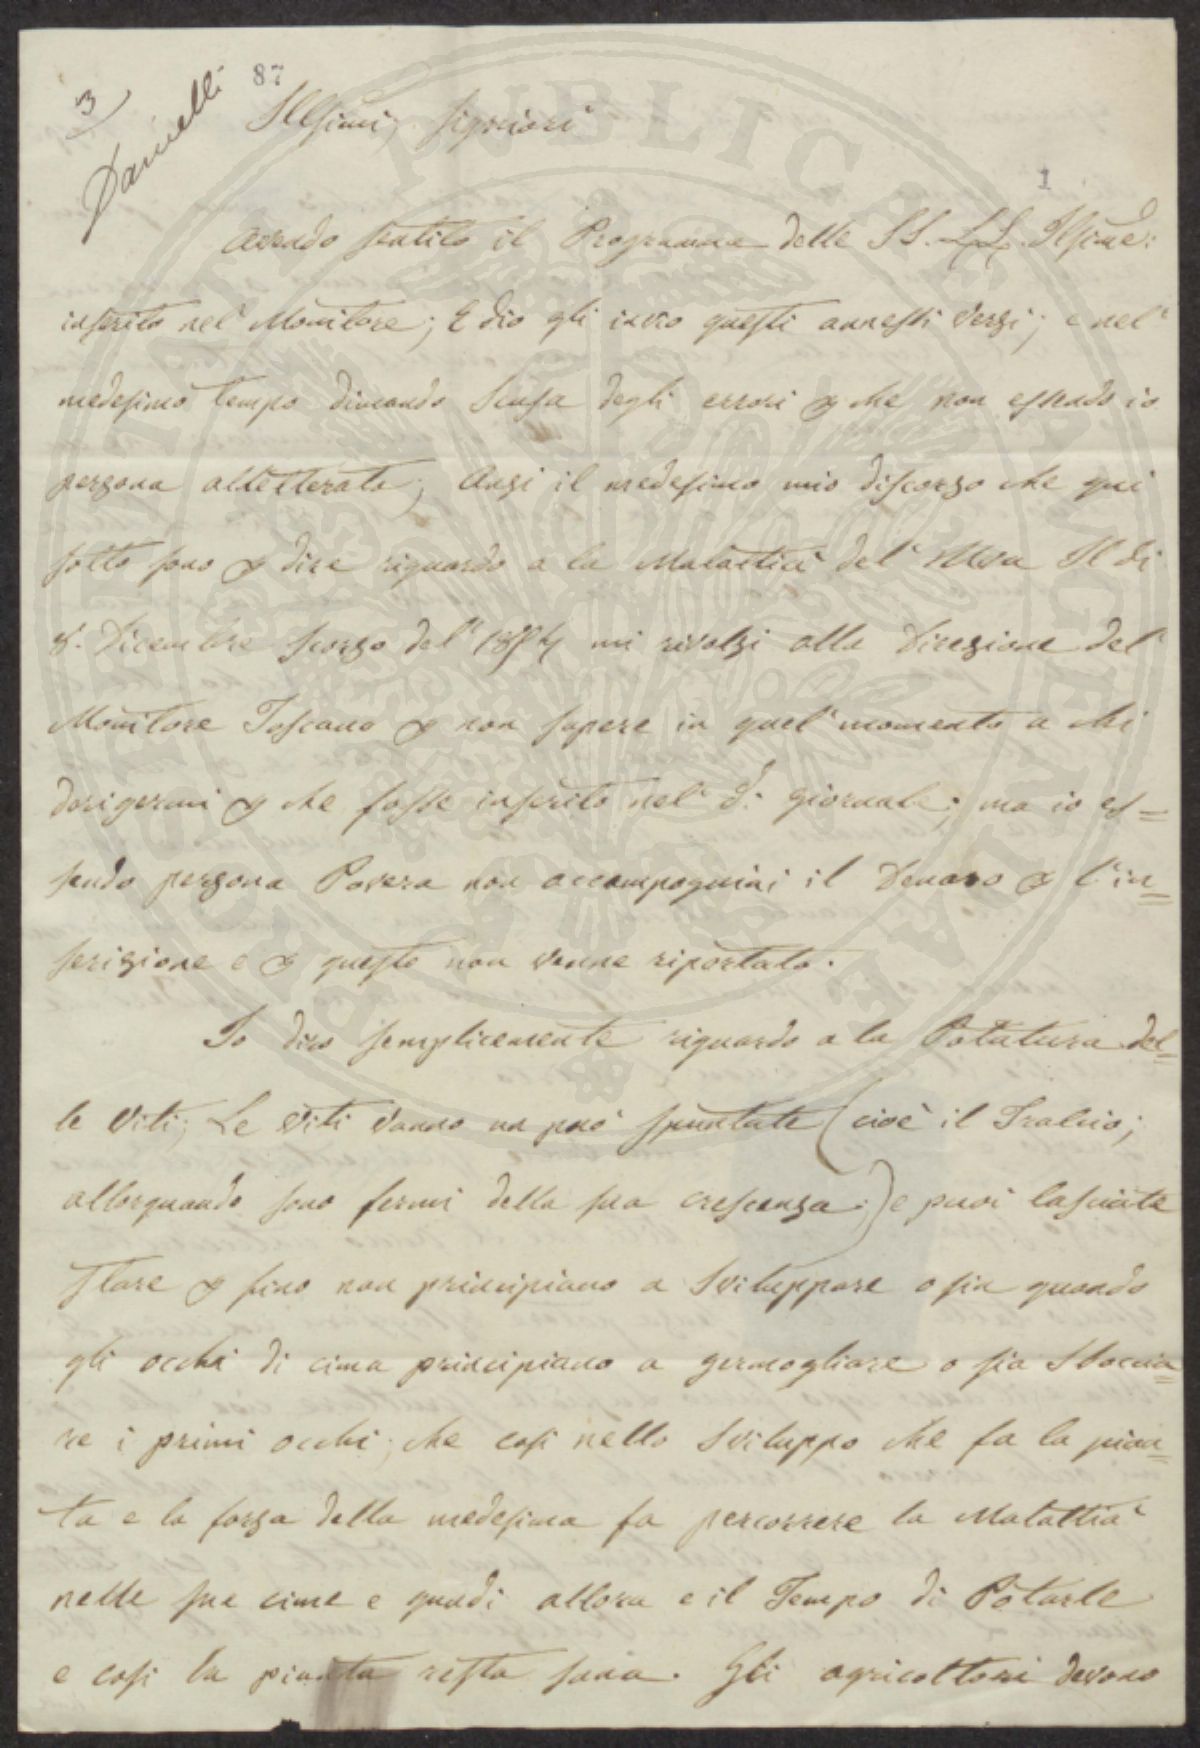 3
Danielli
87
Illsimi, Signiori
1
Avendo sentito il Programma delle SS. LL. Ilsime:
inserito nel' Monitore; E dio gli invio questi annessi Versi; e nel'
medesimo tempo dimando Scusa degli errori p che non essendo io
persona alletterata; Anzi il medesimo mio discorso che qui
sotto sono p dire riguardo a la Malattia del' Uva Il di
8. Dicembre scorso del' 1854 mi rivolsi alla Direzione del'
Monitore Toscano p non sapere in quel' momento a chi
derigermi p che fosse inserito nel' d: giornale; ma io es=
sendo persona Povera non accompagniai il Denaro p l'in=
serizione e p questo non venne riportato.
Io dico semplicemente riguardo a la Potatura del=
le Viti; Le Viti vanno un puo' spuntate (cioè il Tralcio;
allorquando sono fermi della sua crescenza;) e puoi lasciate
stare p fino non principiano a Sviluppare o sia quando
gli occhi di cima principiano a germogliare o sia Sboccia=
re i primi occhi; che cosi nello Sviluppo che fa la pian=
ta e la forza della medesima fa percorrere la Malattia
nelle sue cime e quadi allora e il Tempo di Potarle
e cosi la pianta resta sana. Gli agricoltori devono
PROPRIETAT PUBLICAE AUGENDAE